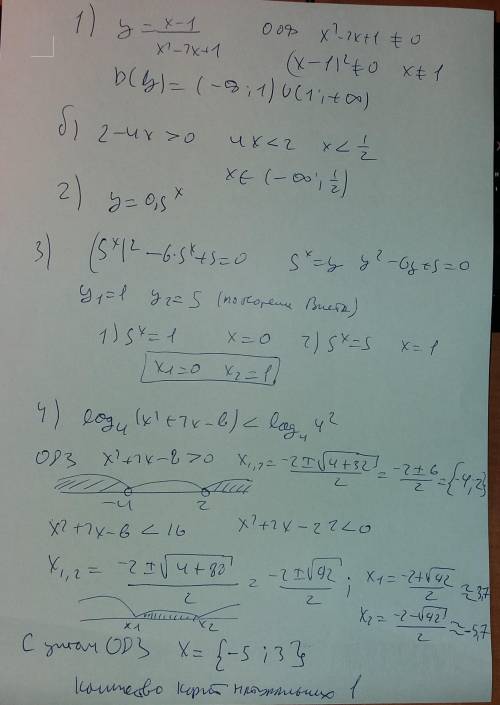 1) y = x-1 / x²-2x+1 ООФ x²-2x+1 ≠ 0
(x-1)² ≠ 0 x ≠ 1
D(y) = (-∞; 1) ∪ (1; +∞)
б) 2-4x > 0 4x < 2 x < 1/2
x ∈ (-∞; 1/2)
2) y = 0,5^x
3) (5^x)² - 6·5^x + 5 = 0 5^x = y y² - 6y + 5 = 0
y₁ = 1 y₂ = 5 (по теореме Виета)
1) 5^x = 1 x = 0 2) 5^x = 5 x = 1
x₁ = 0 x₂ = 1
4) log₄(x²+2x-6) < log₄ 4²
ОДЗ x²+2x-8 > 0 x₁,₂ = -2±√(4+32) / 2 = -2±6 / 2 = {-4, 2}
-4 2
x²+2x-6 < 16 x²+2x-22 < 0
x₁,₂ = -2±√(4+88) / 2 = -2±√92 / 2 ; x₁ = -2+√92 / 2 ≈ 3,7
x₂ = -2-√92 / 2 ≈ -5,7
x₁ x₂
С учетом ОДЗ x = {-5; 3}
Количество корней натуральных 1